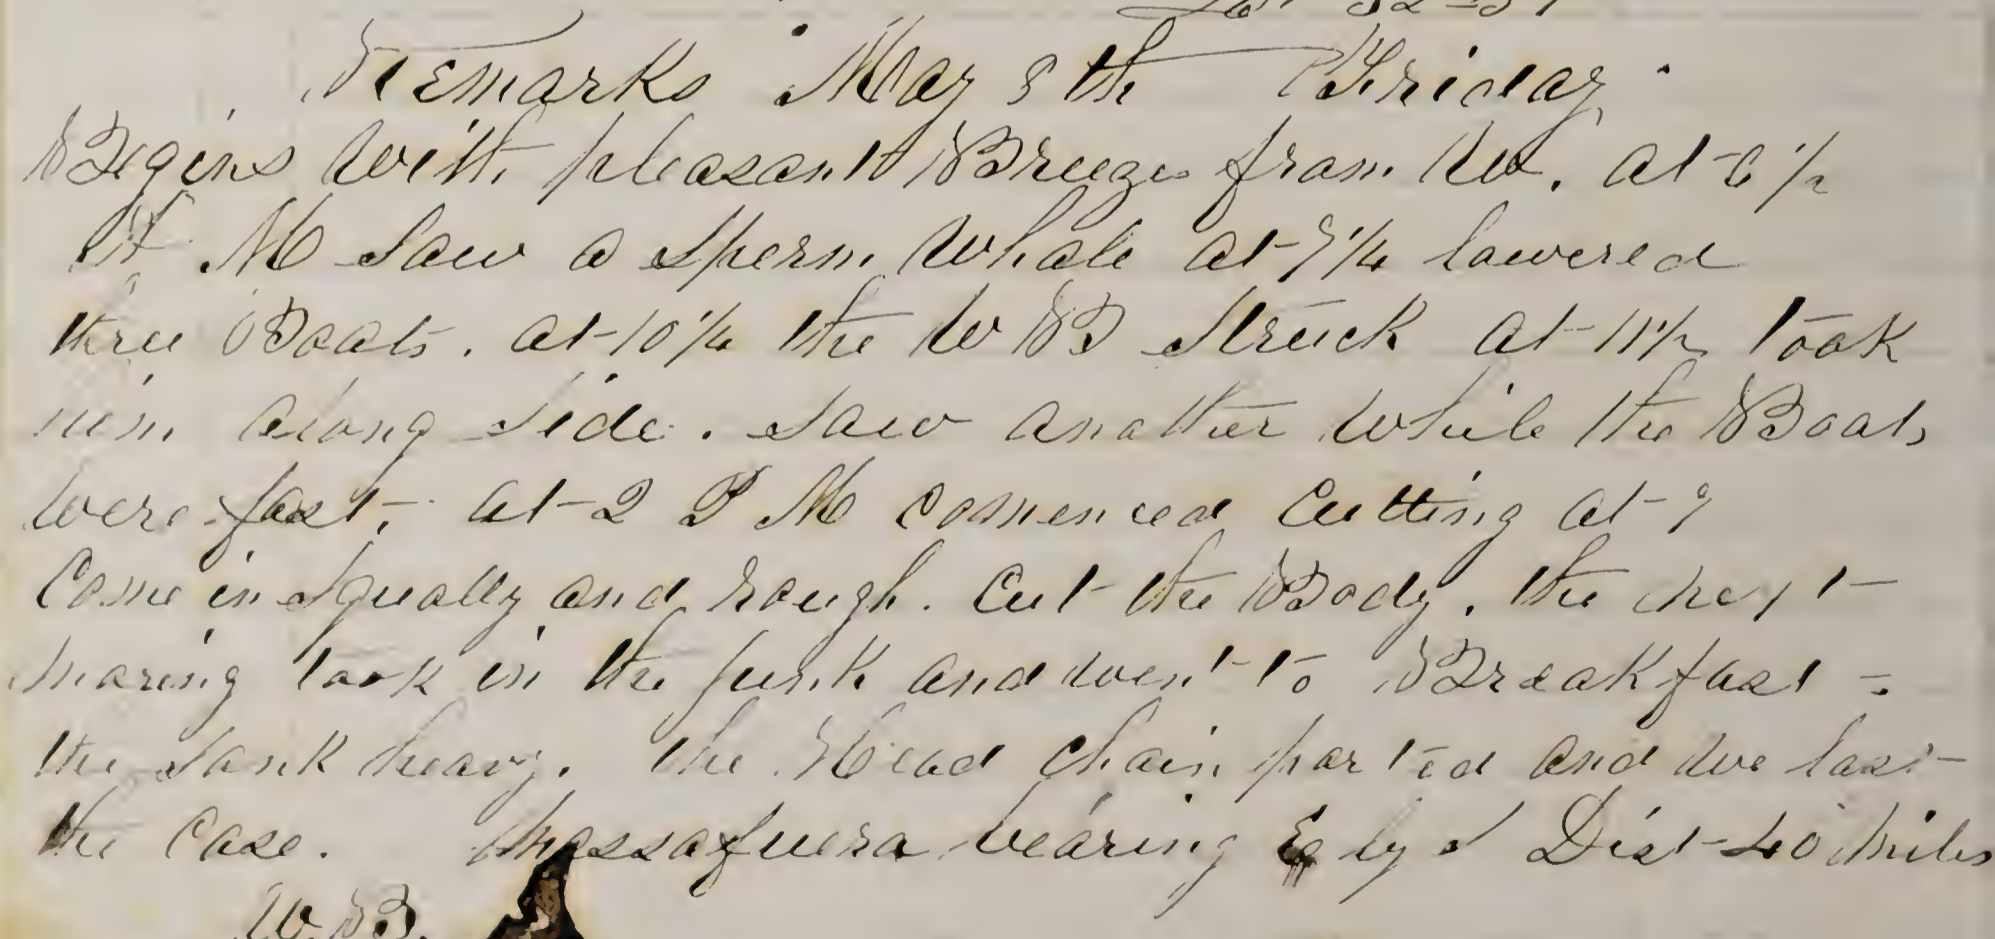 Lon 82-37
Remarks May 8th Friday.
Begins with pleasant Breeze from W. at 6 1/2
A M Saw a Sperm Whale at 9 1/4 lowered
three Boats. at 10 1/4 the W B Struck at 11 1/2 took
him along Side. Saw another while the Boats
were fast. at 2 P M comenced Cutting at 9
Come in Squally and rough. Cut the Body. the next
moring took in the junk and went to Breakfast -
the Sank heavy. the Head chain parted and we lost
the case. Massafuera bearing E by S Dist 40 miles
W.B.